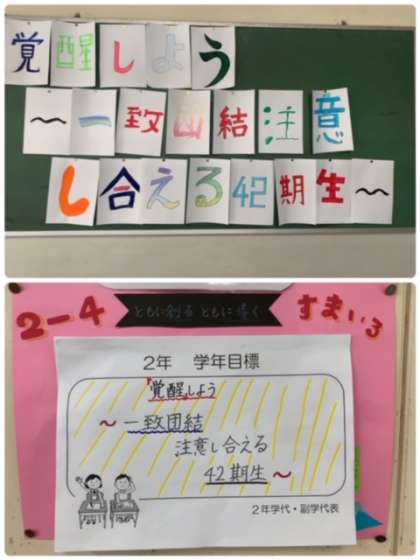 覚醒しよう
〜一致団結注意
し合える42期生〜
2-4
ともに創る ともに導く
すまいる
2年 学年目標
「覚醒」しよう
〜一致団結
注意し合える
42期生〜
2年学代・副学代表